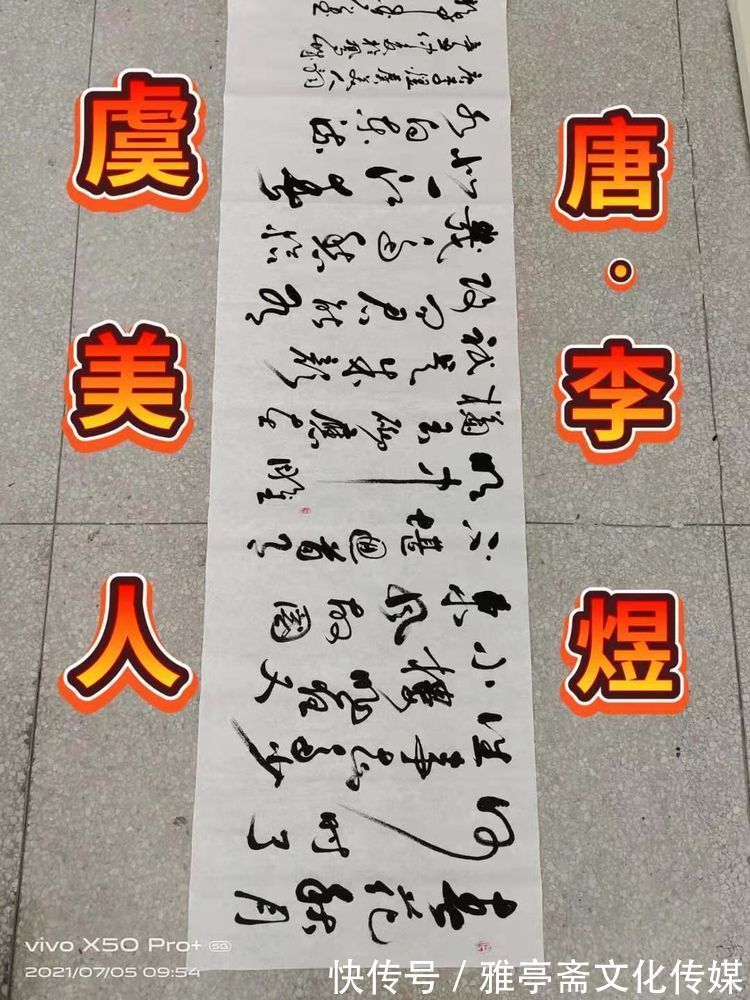 虞美人
唐·李煜
春花秋月
何时了
往事知多少
小楼昨夜又
东风故國
不堪迴首月
明中雕
栏玉砌應犹在
只是朱颜
改问君能有
幾多愁恰
似一江春
水向东流
vivo X50 Pro+ 5G
2021/07/05 09:54
快传号 / 雅亭斋文化传媒